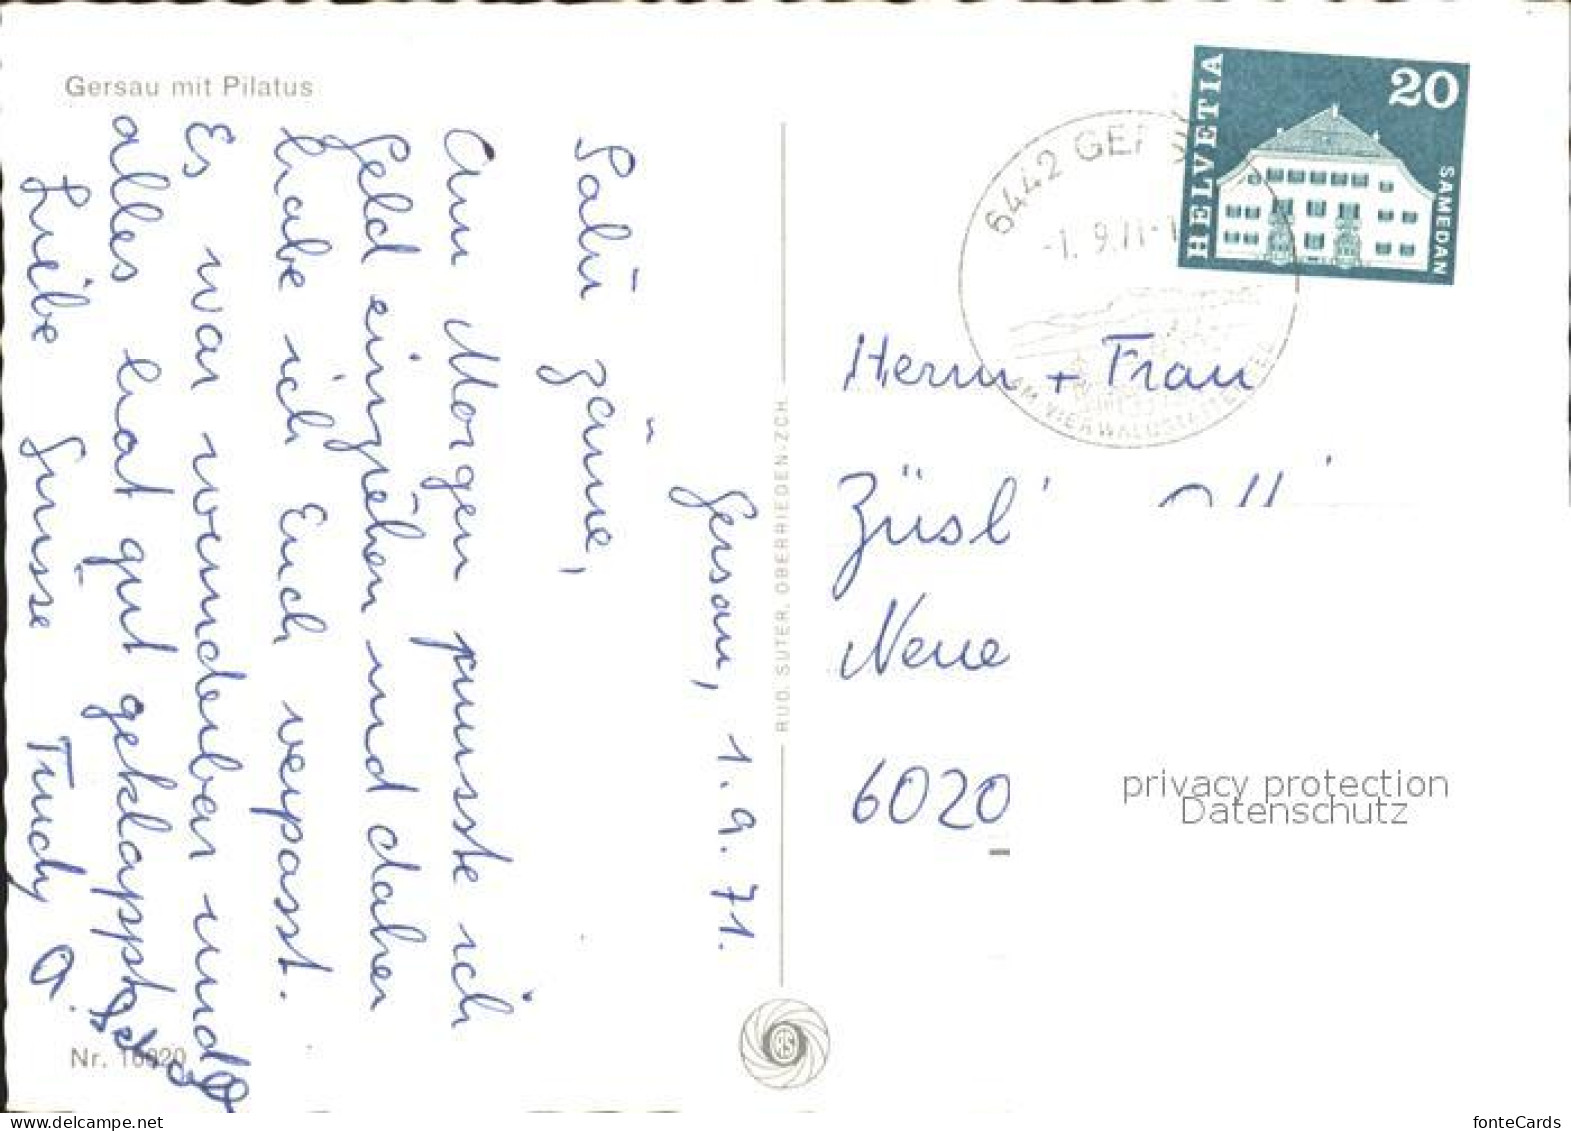 Gersau mit Pilatus
Gersau, 1.9.71.
Salü zäme,
Am Morgen pusste ich
Geld einziehen und daher
habe ich Euch verpasst.
Es war wunderbar und
alles hat gut geklappt.
Liebe Grüsse Trudy O.
Nr. 16020
RUD. SUTER, OBERRIEDEN-ZCH.
HELVETIA
20
SAMEDAN
6442 GE
-1. 9.71-1
AM VIERWALDSTÄTTERSEE
Herrn + Frau
Züsl
Neue
6020
privacy protection
Datenschutz
www.delcampe.net
fonteCards